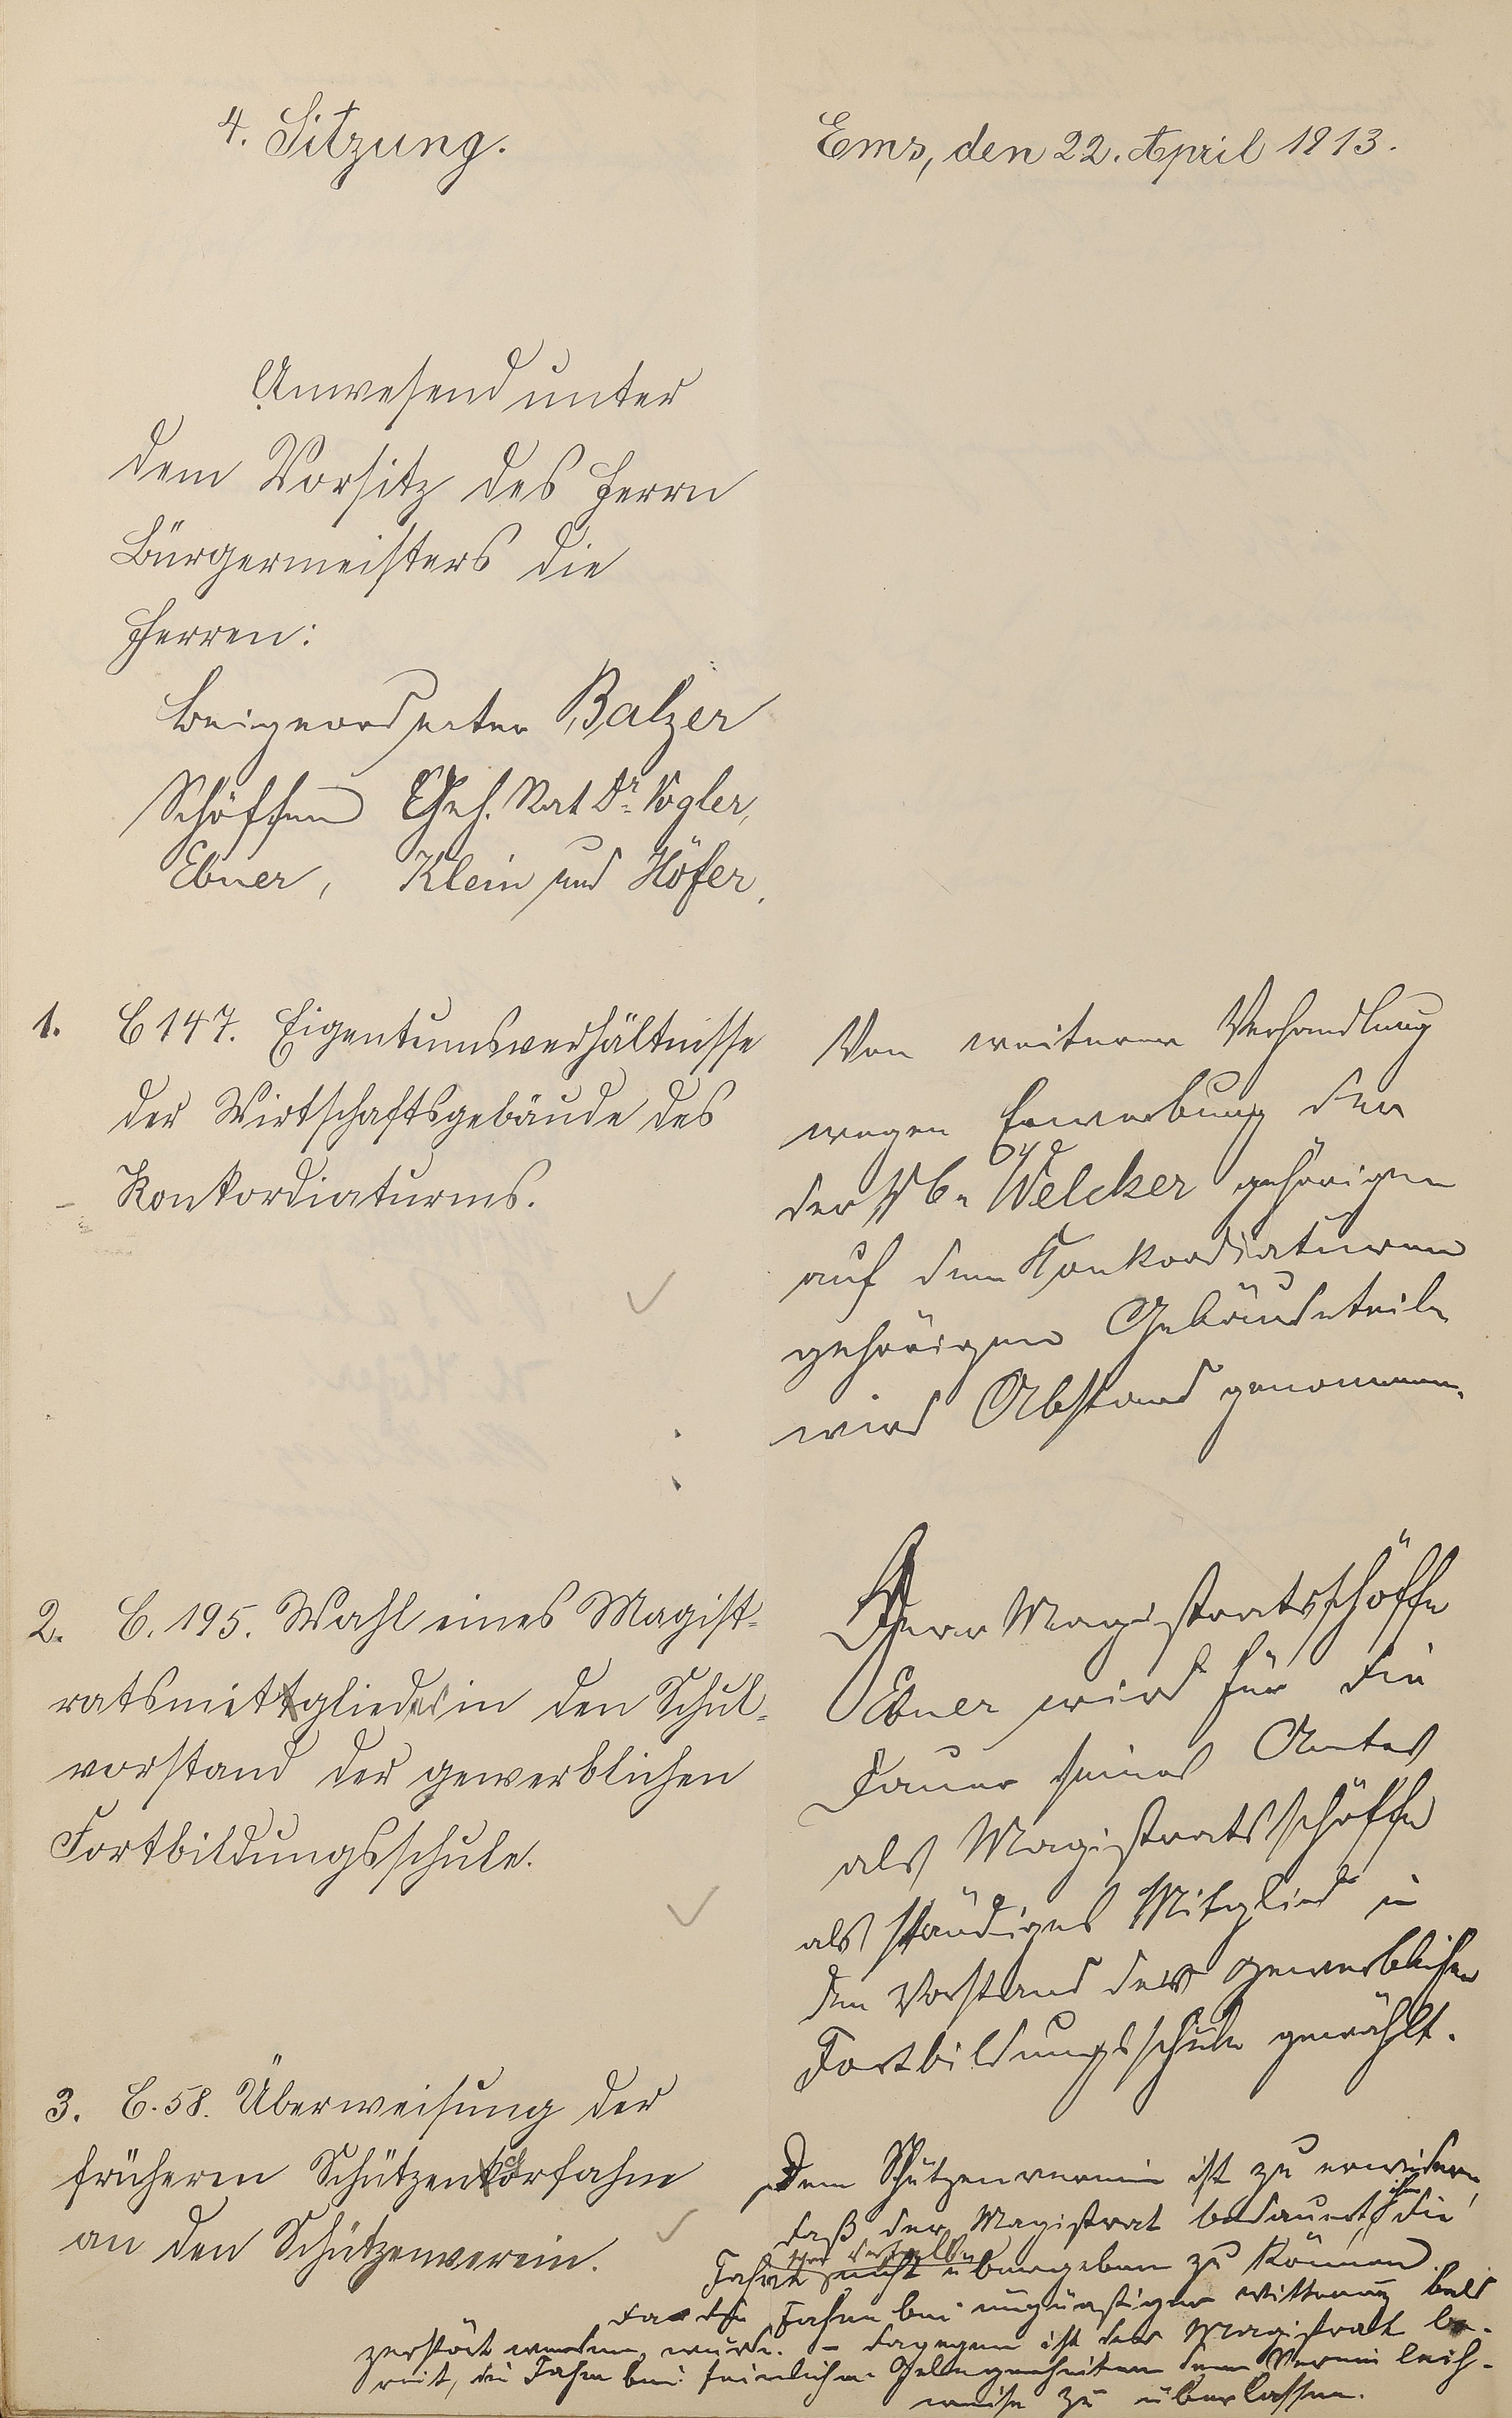 4. Sitzung.
Ems, den 22. April 1913.
Anwesend unter
dem Vorsitz des Herrn
Bürgermeisters die
Herren:
Beigeordneter Balzer
Schöffen Geh. Rat Dr. Vogler,
Ebner, Klein und Höfer.
1. C 147. Eigentumsverhältnisse
der Wirtschaftsgebäude des
Konkordiaturms.
Von weiterer Verhandlung
wegen Erwerbung der
der Welcker gehörigen
auf dem Konkordiaturm
gehörigen Gebäudeteile
wird Abstand genommen.
2. C. 195. Wahl eines Magist-
ratsmitgliedes in den Schul-
vorstand der gewerblichen
Fortbildungsschule.
Herr Magistratsschöffe
Ebner wird für die
Dauer seines Amtes
als Magistratsschöffe
als ständiges Mitglied in
den Vorstand der gewerblichen
Fortbildungsschule gewählt.
3. C. 58. Überweisung der
früheren Schützenkorfahne
an den Schützenverein.
Dem Schützenverein ist zu erwidern,
daß der Magistrat bedauert, ihm die
Fahne nicht übergeben zu können.
da die Fahne bei ungünstiger Witterung bald
zerstört werden würde. – dagegen ist der Magistrat be-
reit, die Fahne bei feierlichen Gelegenheiten dem Verein leih-
weise zu überlassen.